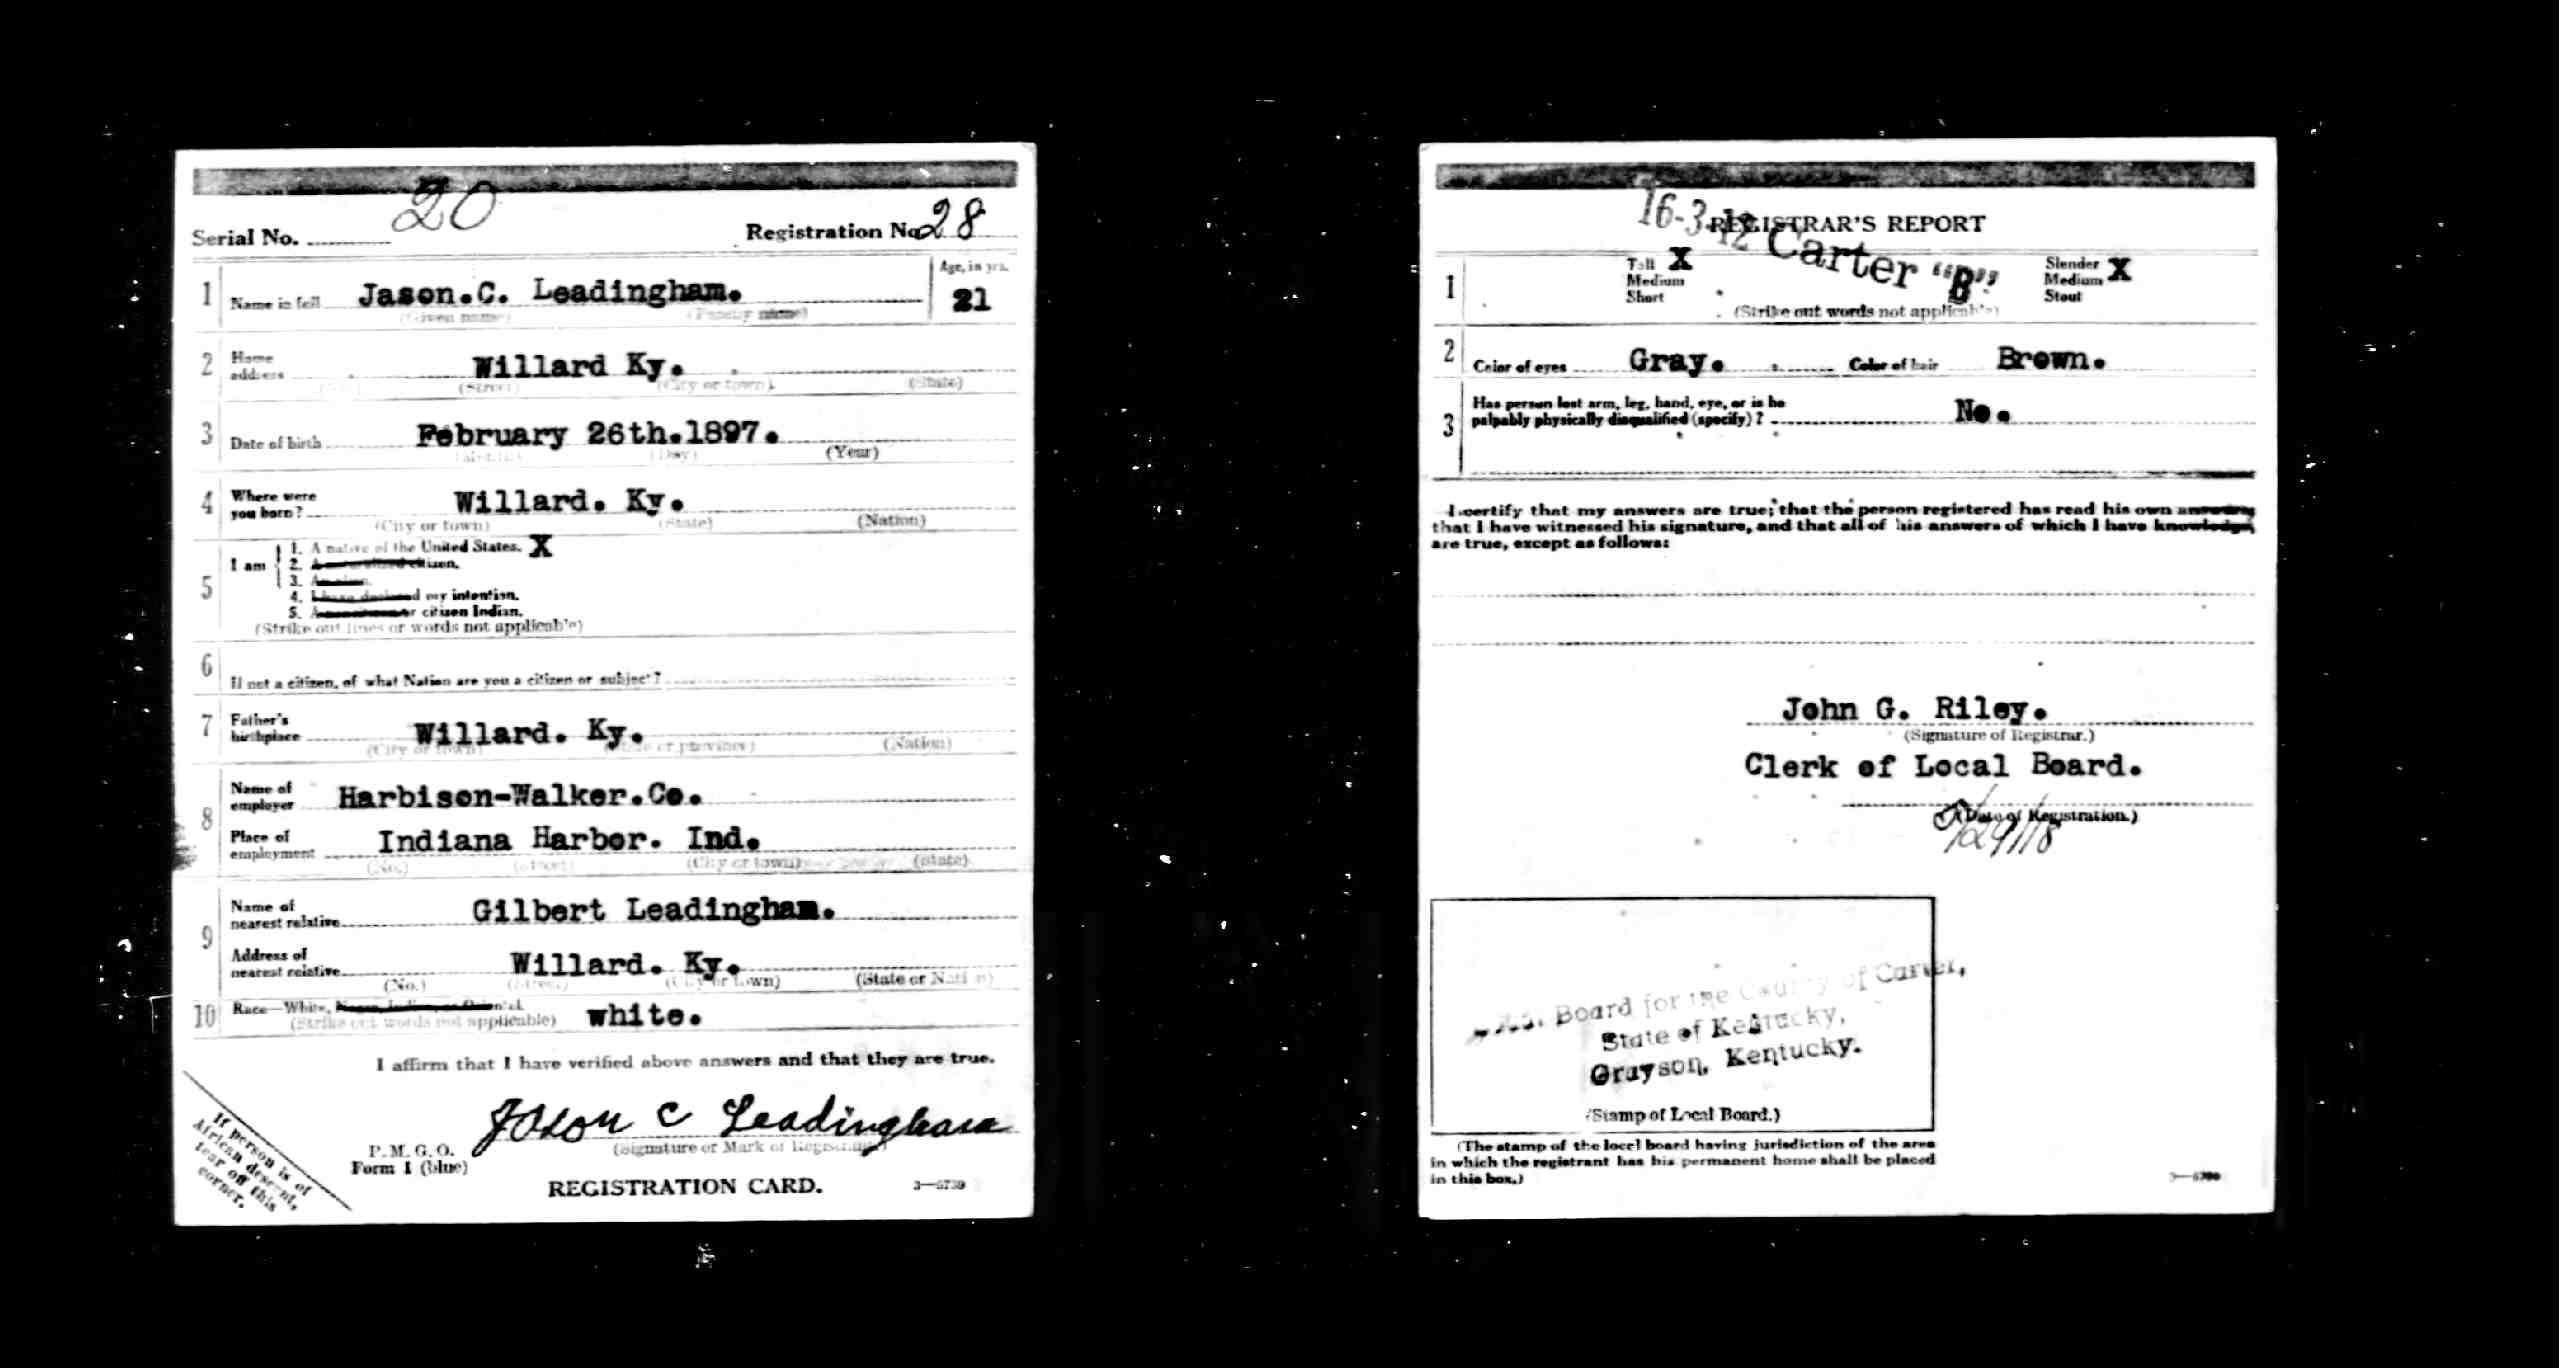 20
Serial No.
Registration No. 28
1 Name in full Jason.C. Leadingham.
(Given name) (Family name)
Age, in yrs.
21
2 Home address Willard Ky.
(No.) (Street) (City or town) (State)
3 Date of birth February 26th.1897.
(Month) (Day) (Year)
4 Where were you born? Willard. Ky.
(City or town) (State) (Nation)
5 I am
1. A native of the United States. X
2. A naturalized citizen.
3. An alien.
4. I have declared my intention.
5. citizen Indian.
(Strike out lines or words not applicable)
6 If not a citizen, of what Nation are you a citizen or subject?
7 Father's birthplace Willard. Ky.
(City or town) (State or province) (Nation)
8 Name of employer Harbison-Walker.Co.
Place of employment Indiana Harbor. Ind.
(No.) (Street) (City or town) (State)
9 Name of nearest relative Gilbert Leadingham.
Address of nearest relative Willard. Ky.
(No.) (Street) (City or town) (State or Nation)
10 Race—White, Negro, Indian, or Oriental.
(Strike out words not applicable) white.
I affirm that I have verified above answers and that they are true.
Jason C Leadingham
(Signature or Mark of Registrant)
P. M. G. O.
Form 1 (blue)
REGISTRATION CARD.
If person is of
African descent,
tear off this
corner.
REGISTRAR'S REPORT
16-3-12 Carter "B"
1 Tall X Slender X
Medium Medium
Short Stout
(Strike out words not applicable)
2 Color of eyes Gray. Color of hair Brown.
3 Has person lost arm, leg, hand, eye, or is he
palpably physically disqualified (specify)? No.
I certify that my answers are true; that the person registered has read his own answers,
that I have witnessed his signature, and that all of his answers of which I have knowledge,
are true, except as follows:
John G. Riley.
(Signature of Registrar.)
Clerk of Local Board.
(Date of Registration.)
Board for the County of Carter,
State of Kentucky,
Grayson, Kentucky.
(Stamp of Local Board.)
(The stamp of the local board having jurisdiction of the area
in which the registrant has his permanent home shall be placed
in this box.)